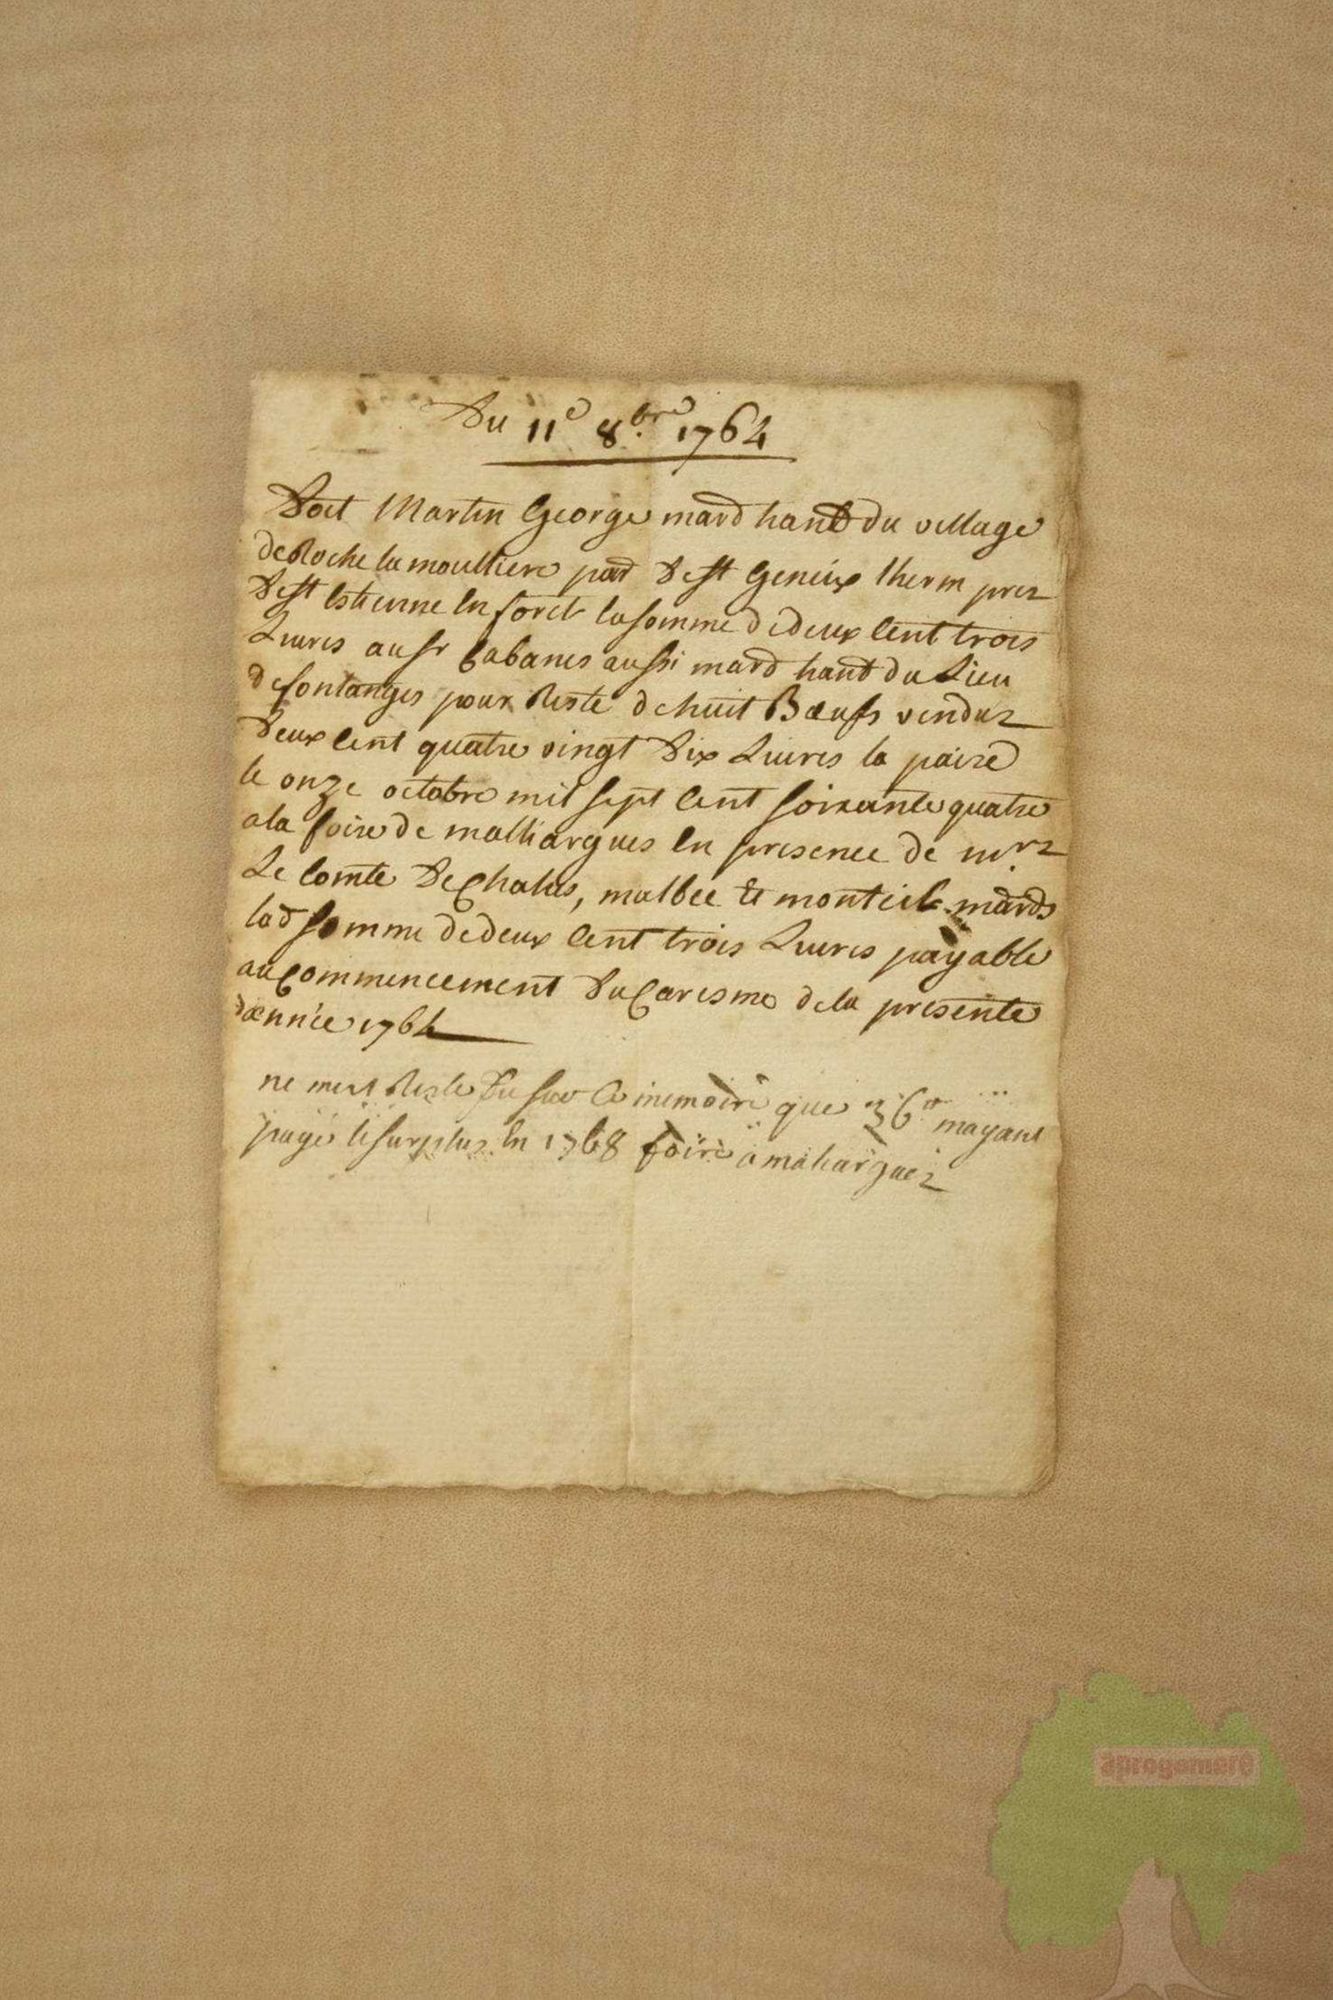 Du 11e 8bre 1764
Doit Martin George marchant du village
de Roche la moulliere par de st Geneix lherm prez
de st Estienne en foret la somme de deux cent trois
Livres au sr Cabanes aussi marchant du Lieu
de fontanges pour Reste de huit Bœufs venduz
deux cent quatre vingt dix Livres la paire
le onze octobre mil sept cent soixante quatre
a la foire de malliargues en presence de mrs
Le Comte de Chalus, malbec et montiel mards
lad somme de deux cent trois Livres payable
au Commencement du Caresme de la presente
année 1764
ne mest Reste du sur Ce memoire que 36 mayant
payé le surplus en 1768 foire a maliarguez
aprogemere